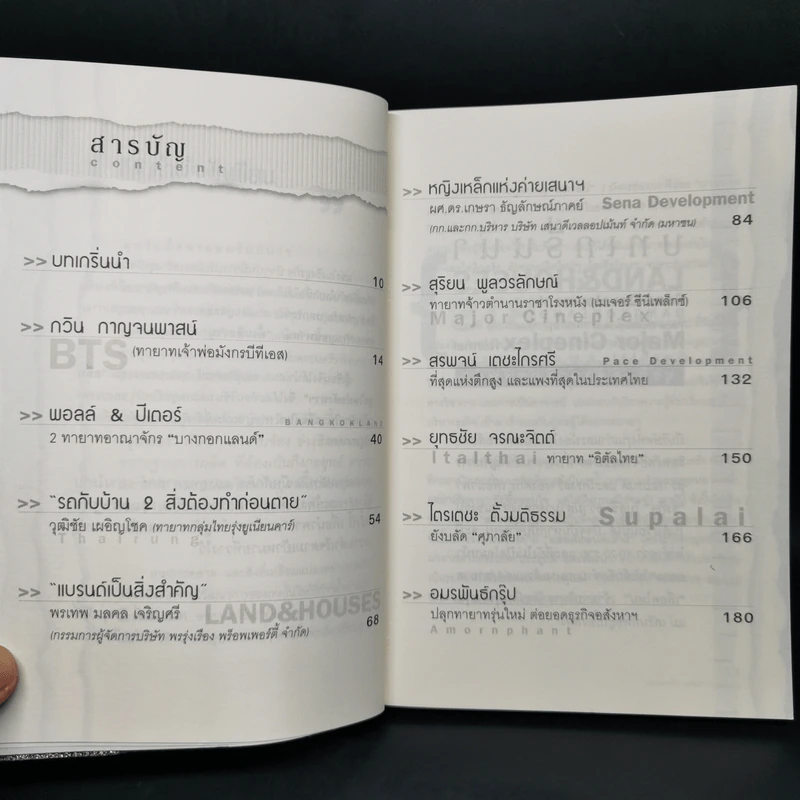 สารบัญ
content
>> บทเกริ่นนำ
10
>> กวิน กาญจนพาสน์
BTS (ทายาทเจ้าพ่อมังกรบีทีเอส) 14
>> พอลล์ & ปีเตอร์
BANGKOKLAND
2 ทายาทอาณาจักร "บางกอกแลนด์" 40
>> "รถกับบ้าน 2 สิ่งต้องทำก่อนตาย"
วุฒิชัย เผอิญโชค (ทายาทกลุ่มไทยรุ่งยูเนียนคาร์) 54
Thairung
>> "แบรนด์เป็นสิ่งสำคัญ"
LAND&HOUSES
พรเทพ มลคล เจริญศรี 68
(กรรมการผู้จัดการบริษัท พรรุ่งเรือง พร็อพเพอร์ตี้ จำกัด)
>> หญิงเหล็กแห่งค่ายเสนาฯ
ผศ.ดร.เกษรา ธัญลักษณ์ภาคย์ Sena Development
(กก.และกก.บริหาร บริษัท เสนาดีเวลลอปเม้นท์ จำกัด (มหาชน) 84
>> สุริยน พูลวรลักษณ์
ทายาทจ้าวตำนานราชาโรงหนัง (เมเจอร์ ซีนีเพล็กซ์) 106
Major Cineplex
>> สรพจน์ เตชะไกรศรี Pace Development
ที่สุดแห่งตึกสูง และแพงที่สุดในประเทศไทย 132
>> ยุทธชัย จรณะจิตต์
Italthai ทายาท "อิตัลไทย" 150
>> ไตรเตชะ ตั้งมติธรรม Supalai
ยังบลัด "ศุภาลัย" 166
>> อมรพันธ์กรุ๊ป
ปลุกทายาทรุ่นใหม่ ต่อยอดธุรกิจอสังหาฯ 180
Amornphant